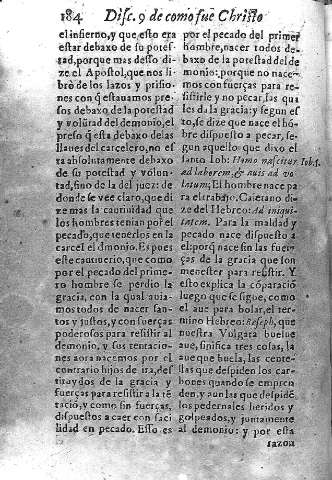 184 Disc. 9 de como fue Christo
el infierno, y que esto era
estar debaxo de su potes-
tad, porque mas desto di-
ze el Apostol, que nos li-
brò de los lazos y prisio-
nes con q̃ estauamos pres-
sos debaxo de la potestad
y volũtad del demonio, el
preso q̃ esta debaxo de las
llaues del carcelero, no es
ta absolutamente debaxo
de su potestad y volun-
tad, sino de la del juez: de
donde se vee claro, que di
ze mas la cautiuidad que
los hombres tenian por el
pecado, que tenerlos en la
carcel el dmonio. Es pues
este cautiuerio, que como
por el pecado del prime-
ro hombre se perdio la
gracia, con la qual auia-
mos todos de nacer san-
tos y justos, y con fuerças
poderosas para resistir al
demonio, y sus tentacio-
nes aora nacemos por el
contrario hijos de ira, des
tituydos de la gracia y
fuerças para resistir a la tẽ
tació, y como sin fuerças,
dispuestos a caer con faci
lidad en pecado. Esso es
por el pecado del primer
hombre, nacer todos de-
baxo de la potestad del de
monio: porque no nace-
mos con fuerças para re-
sistirle y no pecar, las qua
les da la gracia: y segun es
to, se dize que nace el hõ-
bre dispuesto a pecar, se-
gun aquello que dixo el
santo Iob: Homo nascitur Iob. 5.
ad laborem, & auis ad vo-
latum; El hombre nace pa
ra el trabajo. Caietano di-
ze del Hebreo: Ad iniqui-
tatem. Para la maldad y
pecado nace dispuesto a
el: porq̃ nace sin las fuer-
ças de la gracia que son
menester para resistir. Y
esto explica la cõparació
luego que se sigue, como
el aue para bolar, el ter-
mino Hebreo: Reseph, que
nuestra Vulgata buelue
aue, sinifica tres cosas, la
aue que buela, las cente-
llas que despiden los car-
bones quando se empren
den, y aun las que despidẽ
los pedernales heridos y
golpeados, y juntamente
al demonio: y por esta
razon